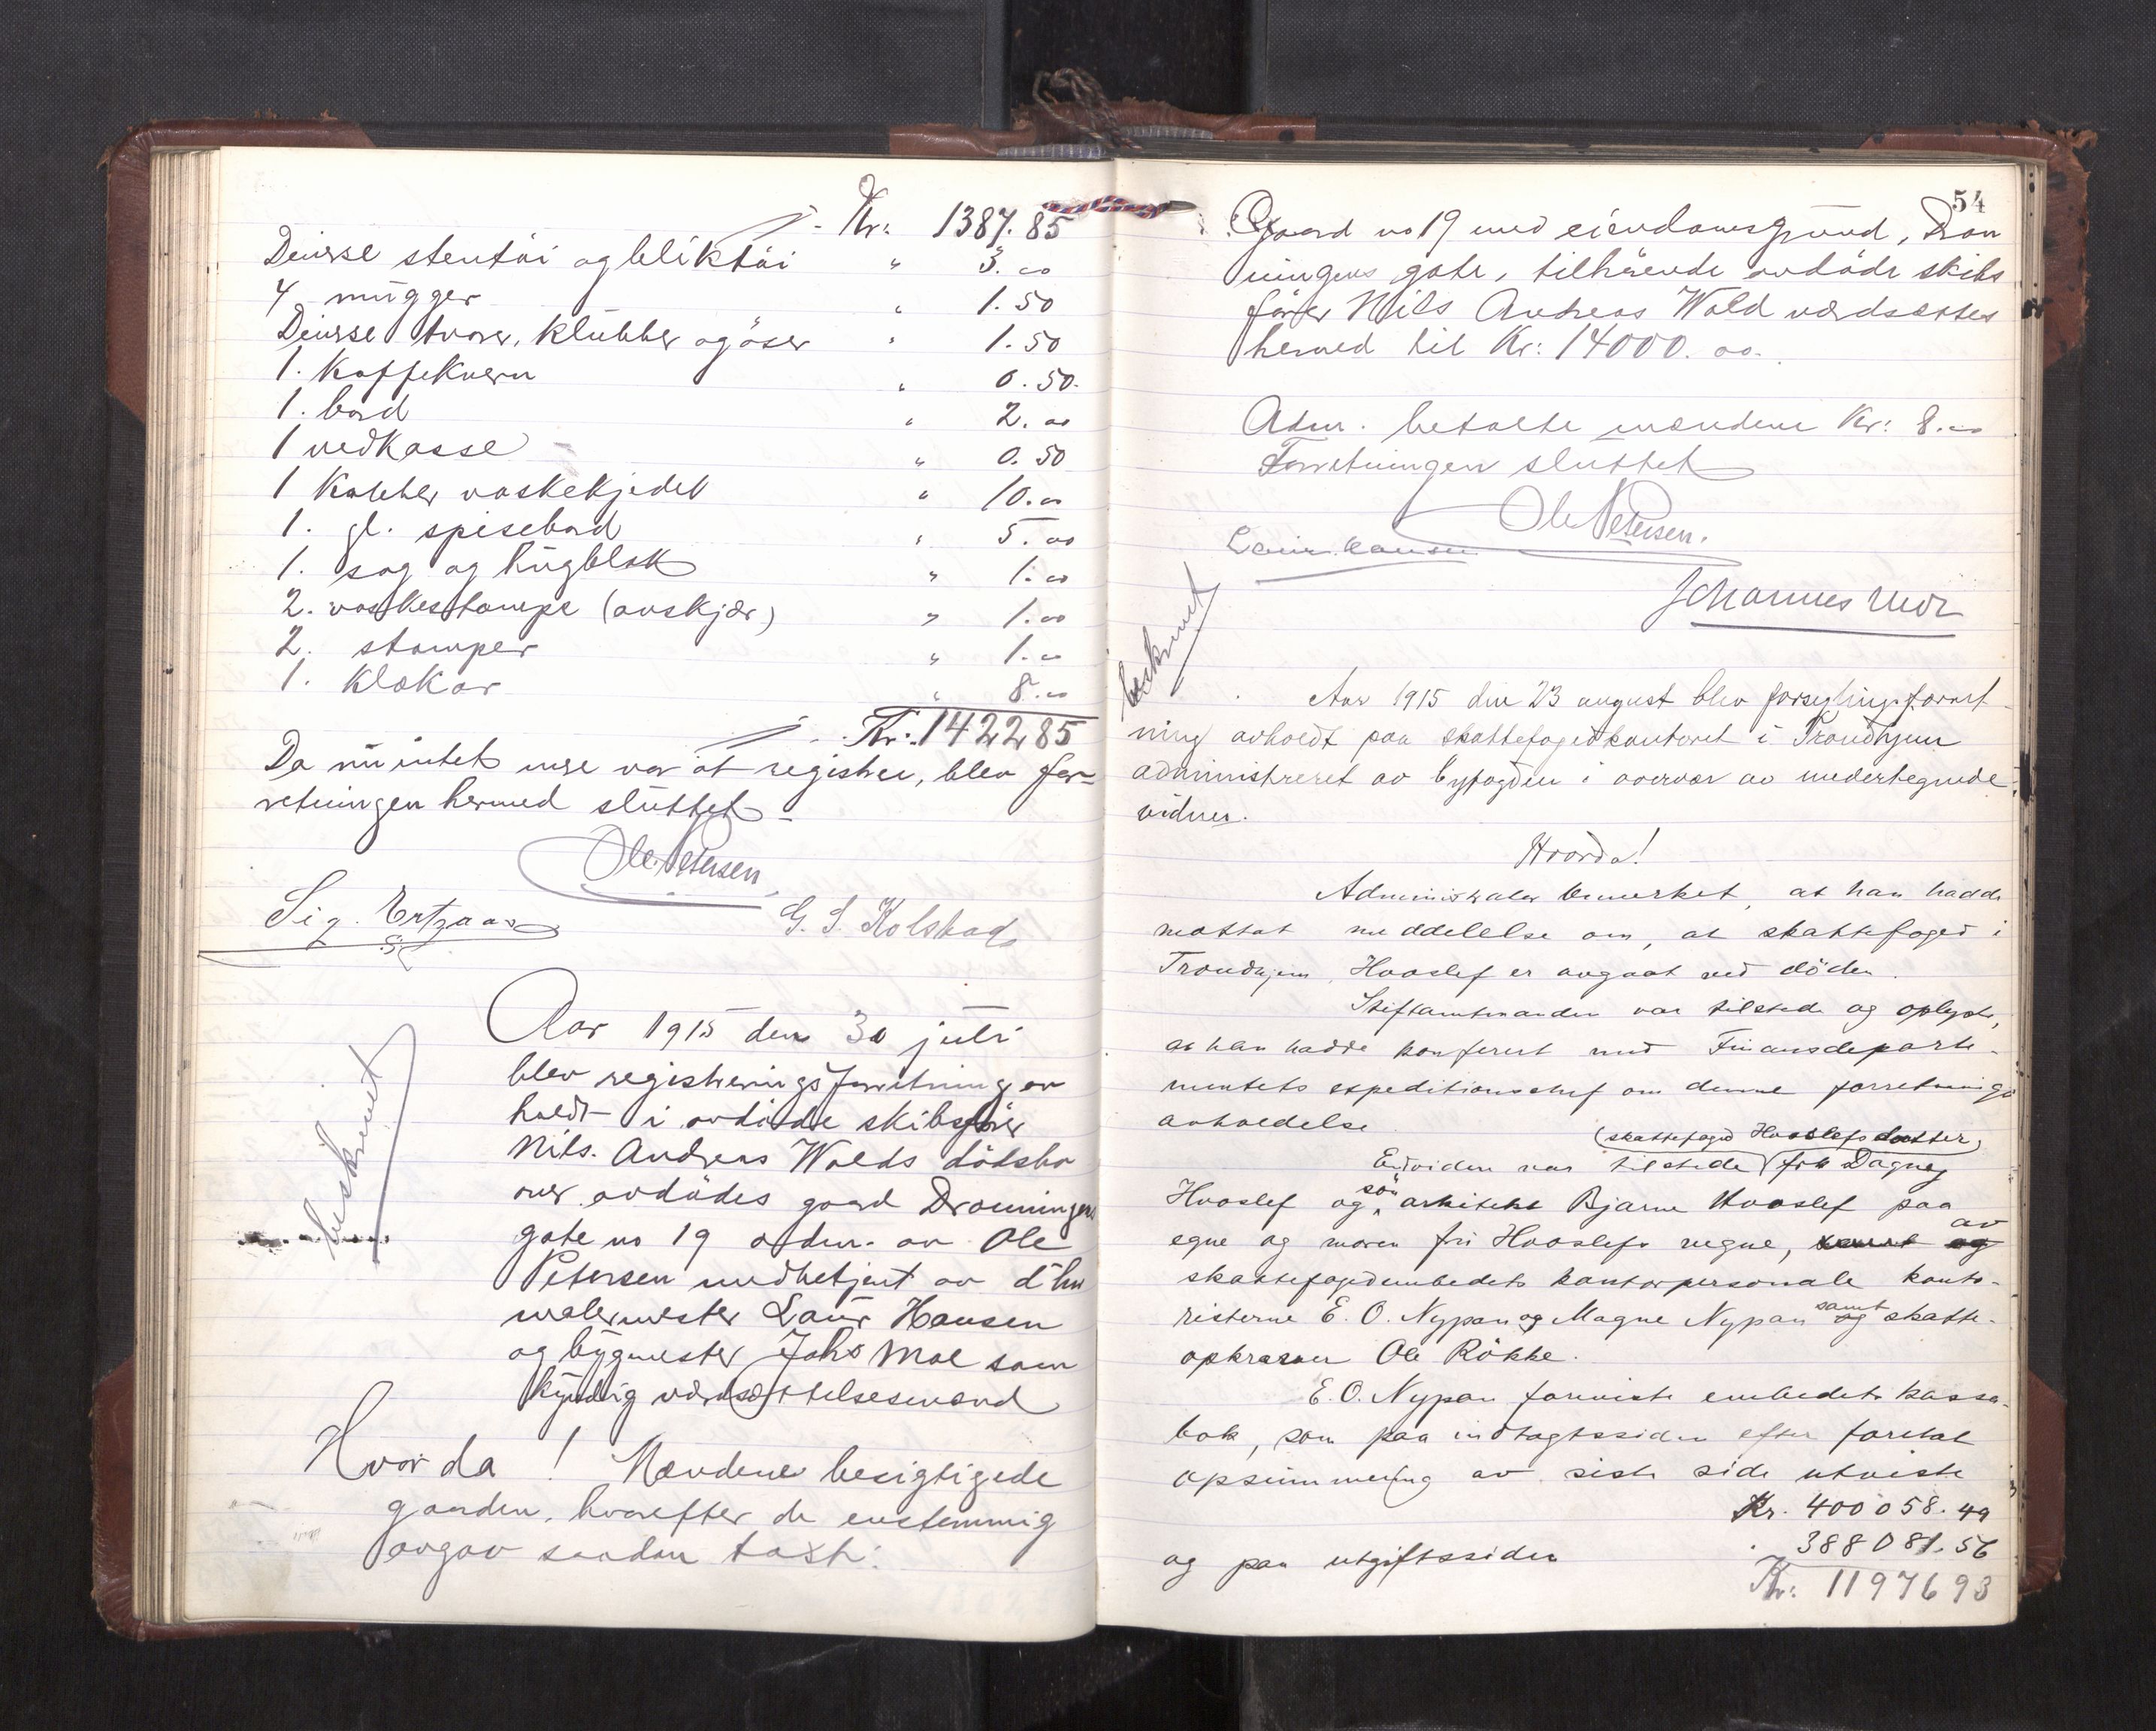 Kr: 1387.85
Diverse stentöi og bliktöi " 3.00
4 mugger " 1.50
Diverse tvarer, klubber og öser " 1.50
1. Kaffekvern " 0.50
1. bord " 2.00
1 vedkasse " 0.50
1 Kobber vaskekjedel " 10.00
1. gl. spisebord " 5.00
1. sag og hugblok " 1.00
2. vaskestampe (avskjær) " 1.00
2. stamper " 1.00
1. Klokar " 8.00
Kr: 1422 85
Da nu intet mere var at registrere, blev for-
retningen hermed sluttet
Ole Petersen
Sig. Ertzaas
G. S. Kolstad
Aar 1915 den 30 juli
blev registreringsforretning av
holdt i avdöde skibsförer
Nils. Andreas Wolds dödsbo
over avdödes gaard Dronningens
gate no 19 adm. av Ole
Petersen medbetjent av d'hrr
malermester Laur Hansen
og bygmester Johs Moe som
kyndig værdsættelsesmænd
beskrevet
Hvorda! Mændene besigtigede
gaarden, hvorefter de enstemmig
avgav saadan takst:
54
Gaard no 19 med eiendomsgrund, Dron
ningens gate, tilhörende avdöde skibs
förer Nils Andreas Wold værdsættes
hermed til Kr: 14000.00.
Adm. betalte mændene Kr: 8.00
Forretningen sluttet
Ole Petersen.
Laur. Hansen
Johannes Moe
beskrevet
Aar 1915 den 23 august blev forseglingsforret
ning avholdt paa skattefogedkontoret i Trondhjem
administreret av byfogden i overvær av undertegnede
vidner.
Hvorda!
Administrator bemerket, at han hadde
mottat meddelelse om, at skattefoged i
Trondhjem, Hooslef er avgaat ved döden.
Stiftamtmanden var tilstede og oplyste,
at han hadde konferert med Finansdeparte-
mentets expeditionschef om denne forretnings
avholdelse.
(skattefoged Hooslefs datter)
Endvidere var tilstede frk Dagny
Hooslef og sön arkitekt Bjarne Hooslef paa
egne og moren fru Hooslefs vegne, samt og av
skattefogedembedets kontorpersonale konto-
risterne E. O. Nypan og Magne Nypan og samt skatte-
opkræver Ole Rökke.
E. O. Nypan foreviste embedets kassa-
bok, som paa indtægtssiden efter foretat
opsummering av siste side utviste
Kr. 400 058.49
og paa utgiftssiden 388 081.56
Kr: 11976 93